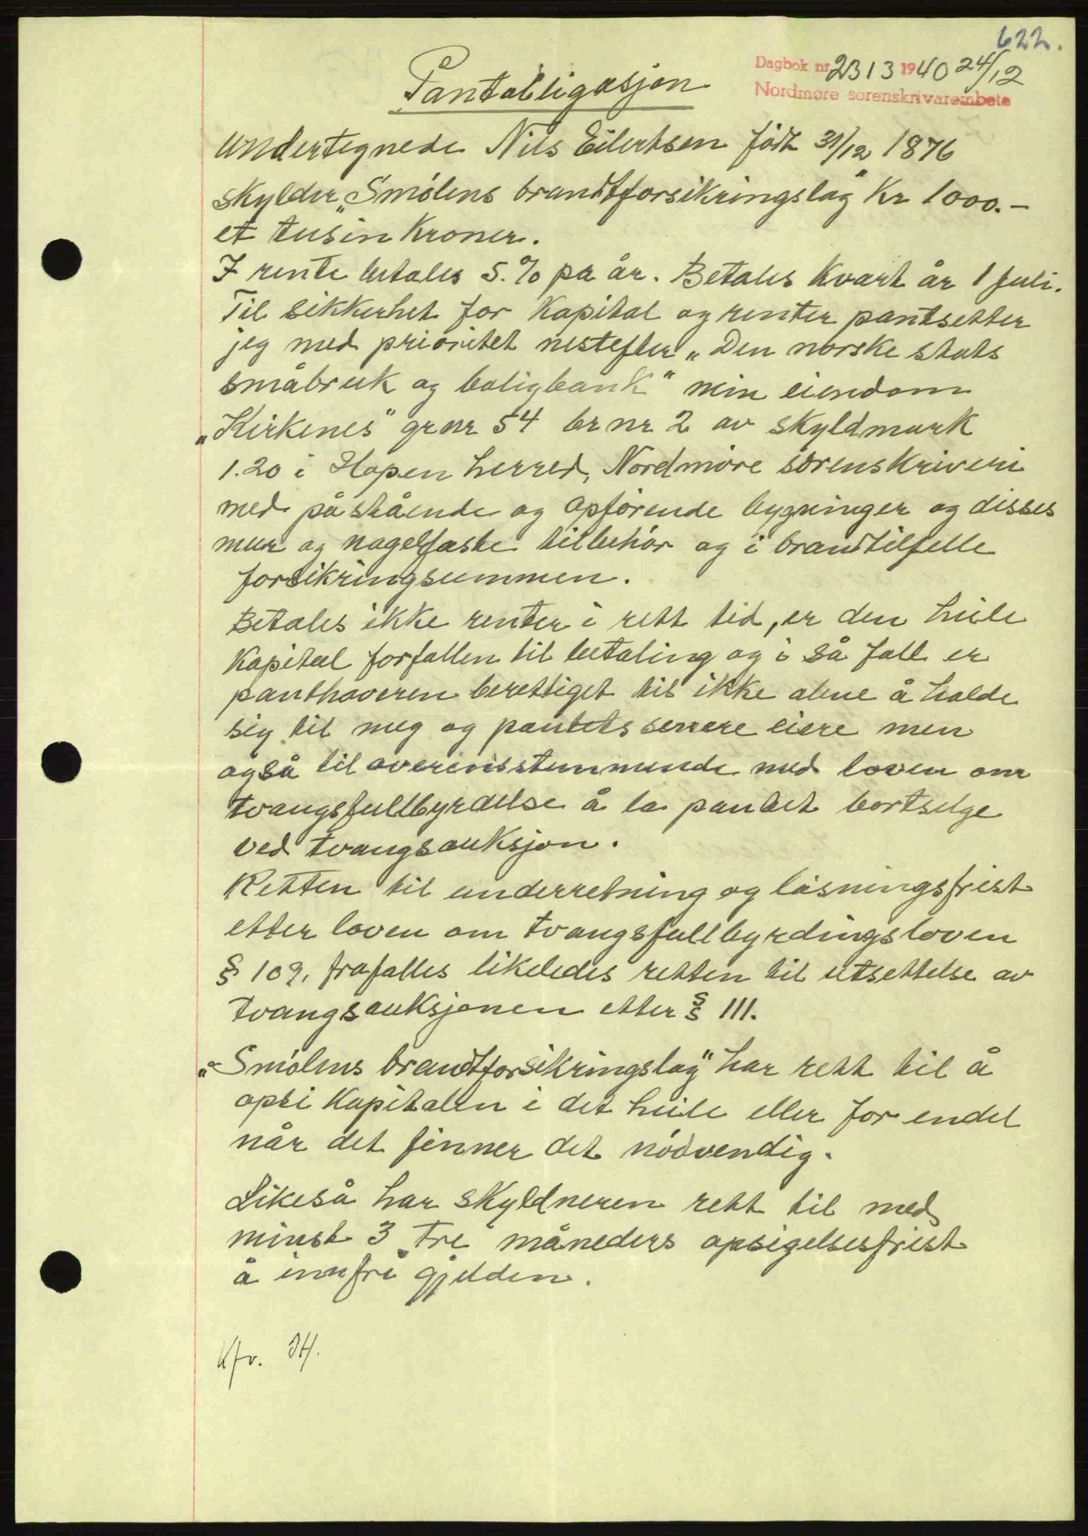 622.
Dagbok nr. 2313 1940 24/12
Nordmøre sorenskrivarembete
Pantobligasjon
Undertegnede Nils Eilertsen født 31/12 1876
skylder „Smølens brandtforsikringslag" Kr 1000.-
et tusin Kroner.
I rente betales 5.% pa år. Betales Kvart år 1 juli.
Til sikkerhet for Kapital og renter pantsetter
jeg med prioritet nestefter „Den norske stats
småbruk og boligbank" min eiendom
„Kirkenes" gr nr 54 br nr 2 av skyldmark
1.20 i Hopen herred, Nordmøre sorenskriveri
med påstående og opførende bygninger og disses
mur og nagelfaste tilbehør og i brandtilfelle
forsikringsummen.
Betales ikke renter i rett tid, er den heile
Kapital forfallen til betaling og i så fall er
panthaveren berettiget til ikke alene å holde
sig til meg og pantets senere eiere men
også til overensstemmende med loven om
tvangsfullbyrdelse å la pantet bortselge
ved tvangsauksjon.
Retten til underretning og løsningsfrist
etter loven om tvangsfullbyrdingsloven
§ 109, frafalles likeledes retten til utsettelse av
tvangsauksjonen etter § 111.
„Smølens brandtforsikringslag" har rett til å
opsi Kapitalen i det heile eller for endel
når det finner det nødvendig.
Likeså har skyldneren rett til med
minst 3 tre måneders opsigelsesfrist
å innfri gjelden.
Kfr.